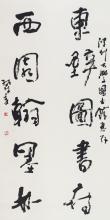 大學圖書館惠存
東壁圖書府
西園翰墨林